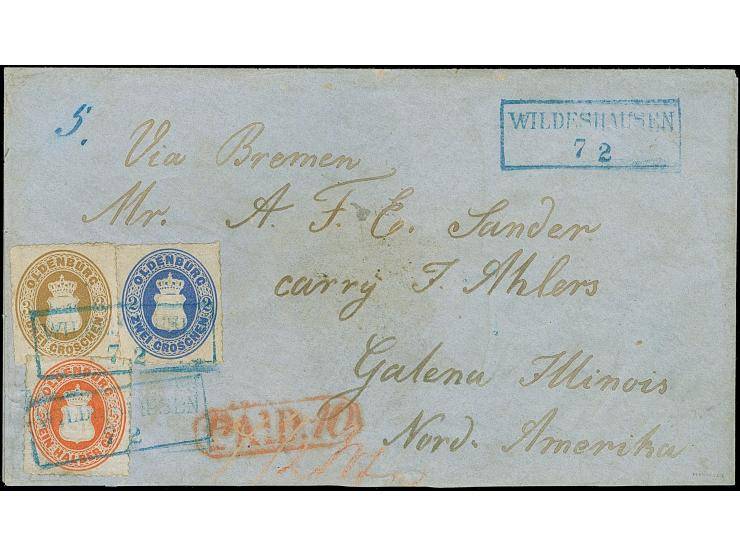 5.
WILDESHAUSEN
7 2
Via Bremen
Mr. A. F. E. Sander
carry F. Ahlers
Galena Illinois
Nord-Amerika
OLDENBURG
EI GROSCHEN
OLDENBURG
2 2
ZWEI GROSCHEN
7 2
OLDENBURG
EIN HALBER
2
PAID.